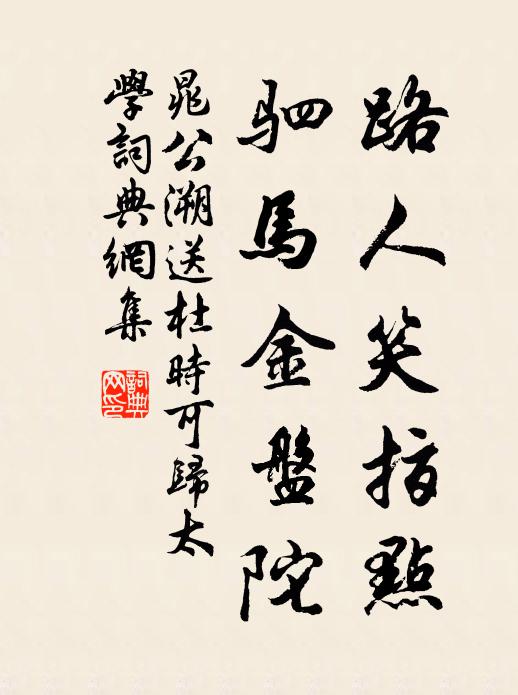 路人笑指點
駟馬金盤陀
晁公溯送杜時可歸太
學詞典網集
詞典網印